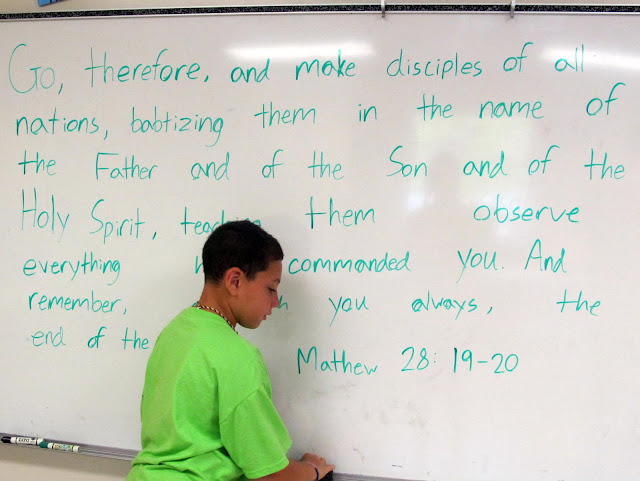 Go, therefore, and make disciples of all
nations, babtizing them in the name of
the Father and of the Son and of the
Holy Spirit, them observe
everything commanded you. And
remember, you always, the
end of the
Mathew 28: 19-20